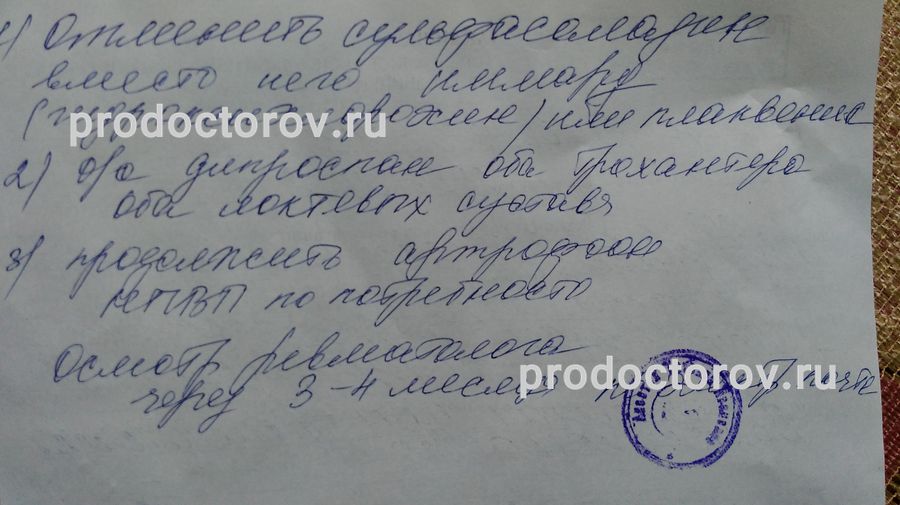 1) Отменить сульфасалазин
вместо него иммард
(гидроксихлорохин) или плаквенил
prodoctorov.ru
2) дипроспан оба трохантера
оба локтевых сустава
3) продолжить артрофоон
НПВП по потребности
Осмотр ревматолога
через 3-4 месяца
prodoctorov.ru